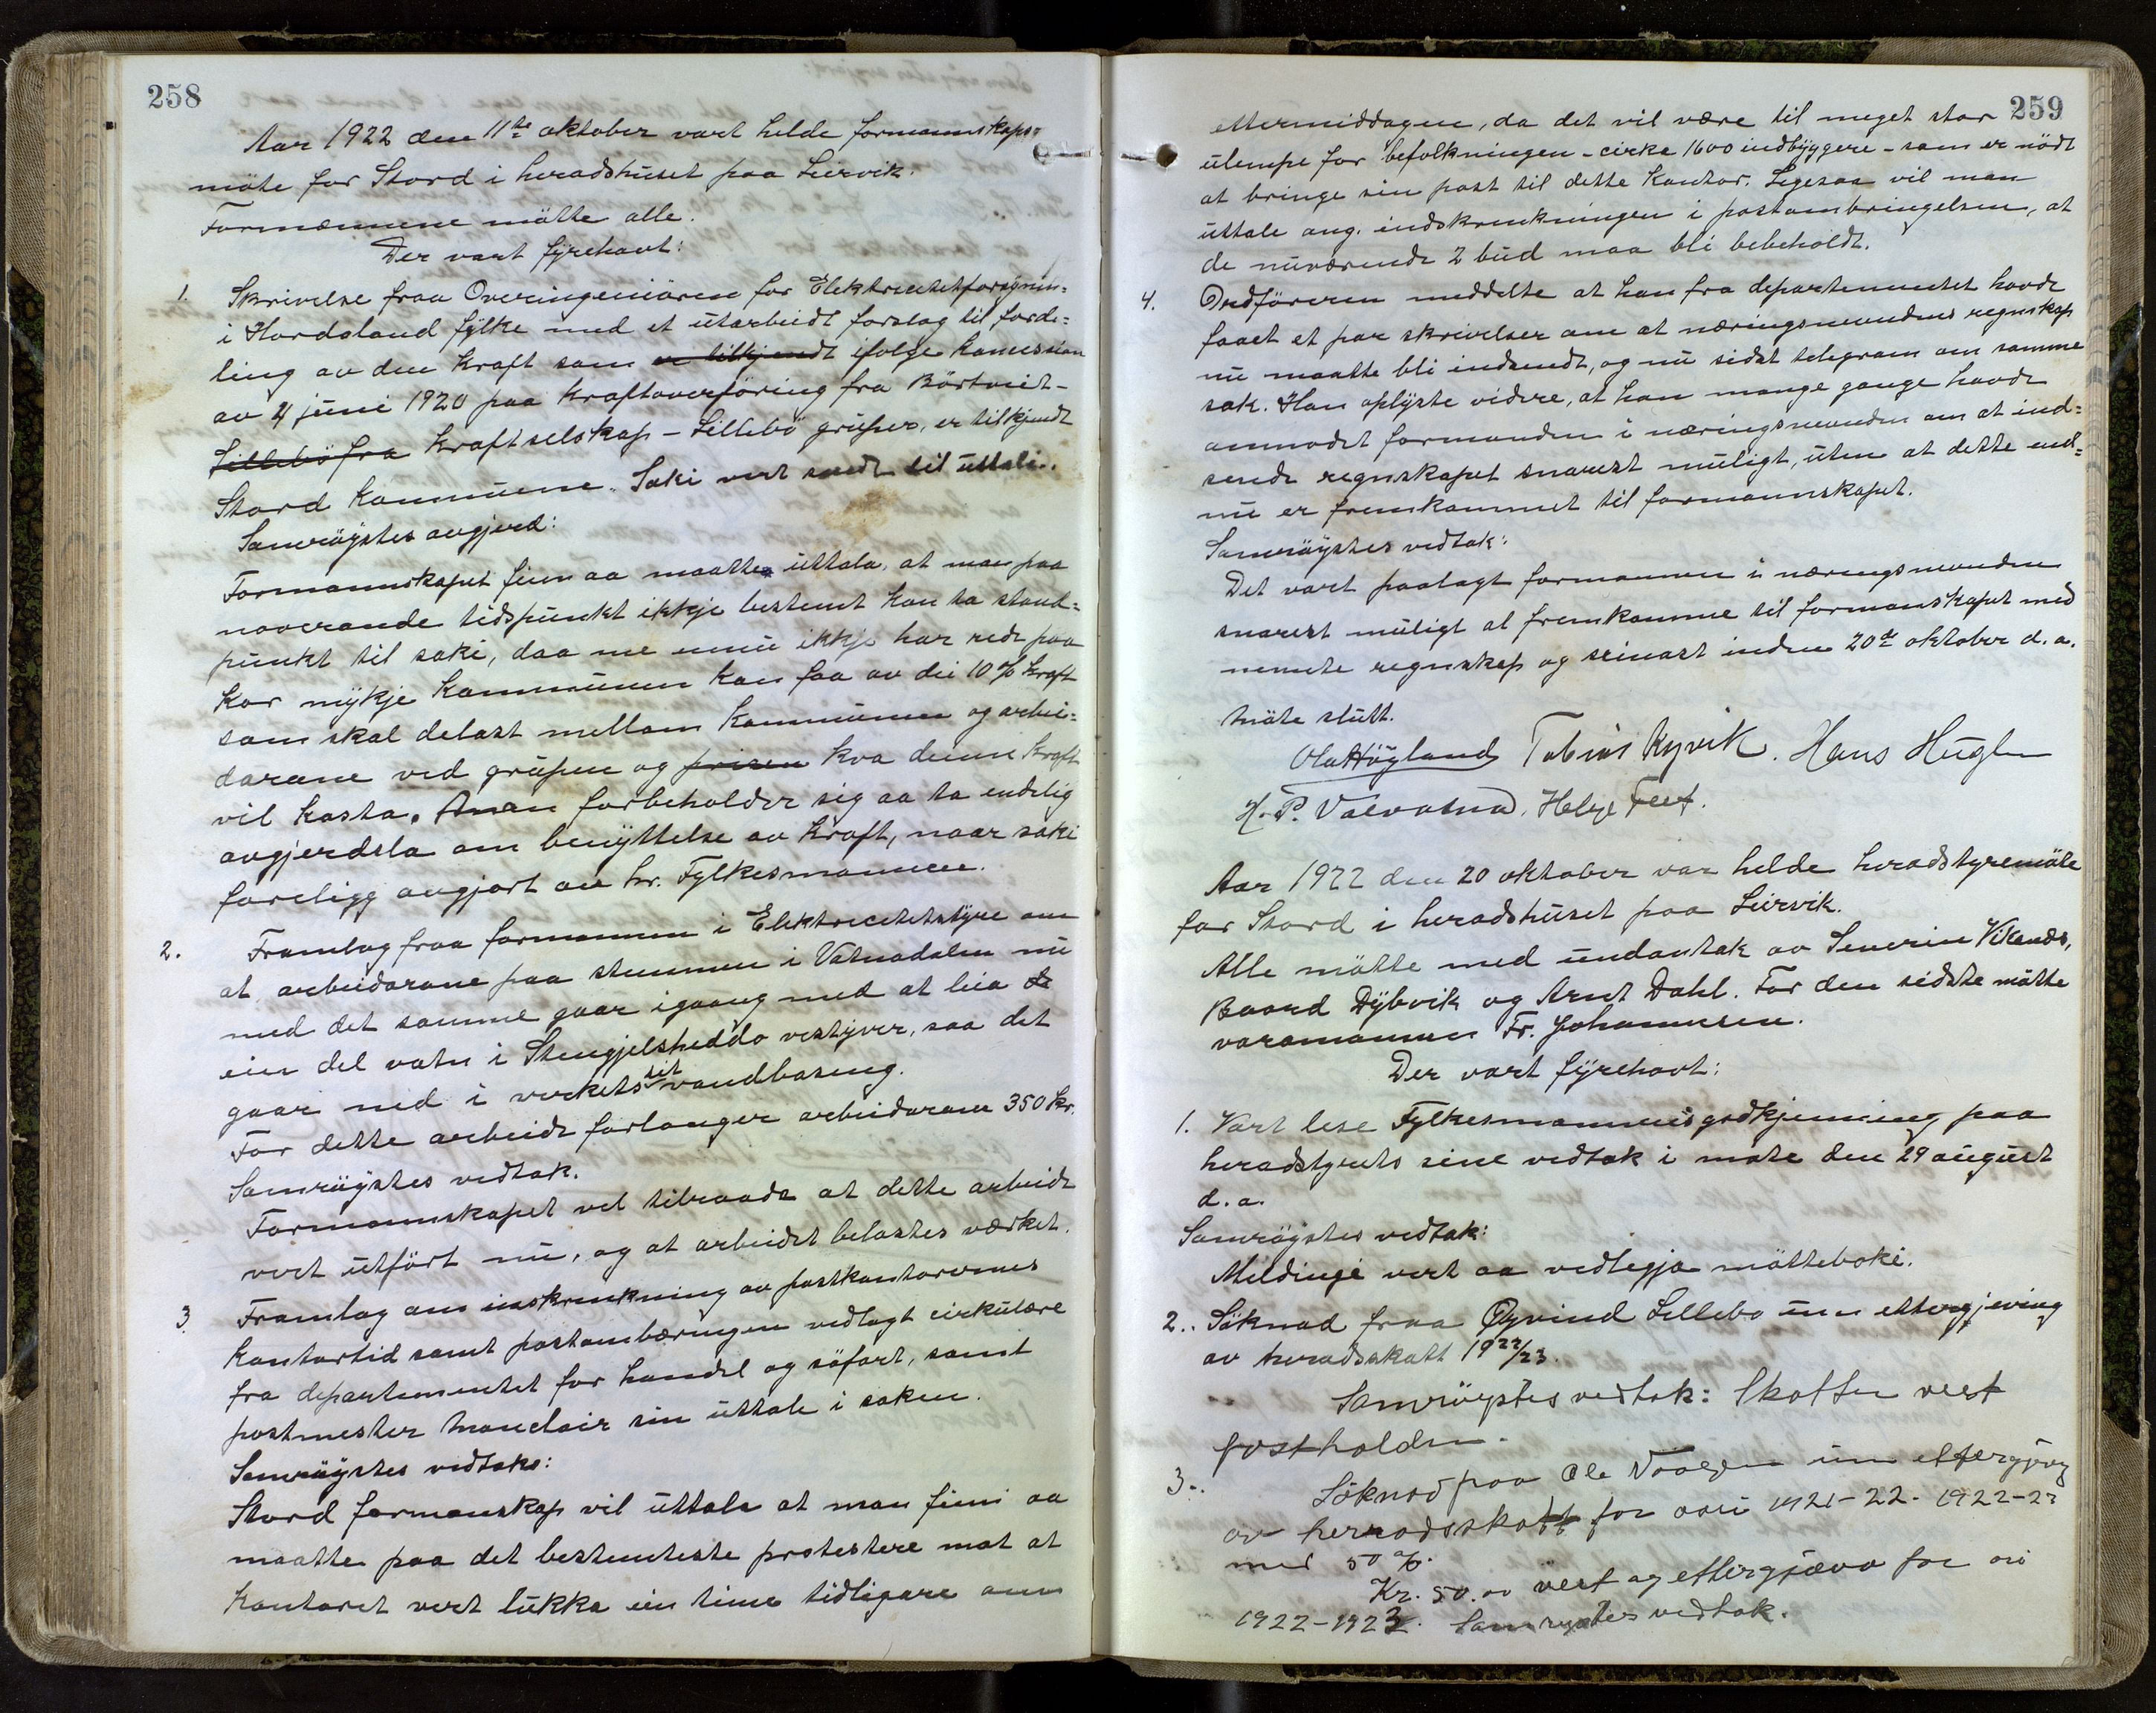 258
Aar 1922 den 11te oktober vart helde formannskaps=
möte for Stord i heradshuset paa Leirvik.
Formennene mötte alle.
Der vart fyrehavt:
1. Skrivelse fraa Overingeniören for Elektricitetforsynin=
i Hordaland fylke med et utarbeidt forslag til forde=
ling av den kraft som er tilkjendt ifölge konsesion
av 4 juni 1920 paa kraftoverföring fra Börtveit-
Lillebö fra kraftselskap - Lillebö gruber, er tilkjendt
Stord kommune. Saki vert sendt til uttale.
Samröystes avgjerd:
Formannskapet finn aa maatte uttala, at man paa
noverande tidspunkt ikkje bestemt kan ta stand=
punkt til saki, daa me ennu ikkje har rede paa
kor mykje kommunen kan faa av dei 10 % kraft
som skal delast mellom kommunen og arbei=
darane ved gruben og prisen kva denne kraft
vil kosta. Man forbeholder sig aa ta endelig
avgjerdsla om benyttelse av kraft, naar saki
foreligg avgjort av hr. Fylkesmannen.
2. Framlag fraa formannen i Elektricitetstyre om
at arbeidarane paa stemmen i Vatnadalen nu
med det samme gaar igaang med at leia de
ein del vatn i Stengjelsheddo vestyver, saa det
gaar ned i verkets sit vandbasseng.
For dette arbeide forlanger arbeidarane 350 kr.
Samröystes vedtak.
Formannskapet vil tilraada at dette arbeide
vert utfört nu, og at arbeidet belastes værket.
3. Framlag om inskrenkning av postkontorernes
kontortid samt postombæringen vedlagt cirkulære
fra departementet for handel og söfart, samt
postmester Monclair sin uttale i saken.
Samröystes vedtak:
Stord formanskap vil uttala at man finn aa
maatte paa det bestemteste protestere mot at
kontoret vert lukka ein time tidligare om
259
ettermiddagen, da det vil være til meget stor
ulempe for befolkningen - cirka 1600 indbyggere - som er nödt
at bringe sin post til dette kontor. Legesaa vil man
uttale ang. indskrenkningen i postombringelsen, at
de nuværende 2 bud maa bli bebeholdt.
4. Ordföreren meddelte at han fra departementet havde
faaet et par skrivelser om at næringsnevndens regnskap
nu maatte bli indsendt, og nu sidst telegram om samme
sak. Han oplyste videre, at han mange gange havde
anmodet formanden i næringsnevnden om at ind=
sende regnskapet snarest muligt, uten at dette end=
nu er fremkommet til formannskapet.
Samröystes vedtak:
Det vart paalagt formannen i næringsnevnden
snarest muligt at fremkomme til formanskapet med
nemnte regnskap og seinast inden 20de oktober d.a.
Möte slutt.
Ola Höyland Tobias Kyvik. Hans Huglen
H. P. Valvatna. Helge Teet.
Aar 1922 den 20 oktober var helde heradstyremöte
for Stord i heradshuset paa Leirvik.
Alle mötte med undantak av Severin Vikanes,
Baard Dybvik og Arnt Dahl. For den sidste mötte
varamannen Fr. Johannesen.
Der vart fyrehavt:
1. Vart lese Fylkesmannens godkjenning paa
heradstyrets sine vedtak i möte den 29 august
d.a.
Samröystes vedtak:
Meldingi vert aa vedlegja mötteboki.
2. Söknad fraa Öyvind Lillebo um ettergjeving
av heradsskatt 1922/23.
Samröystes vedtak: Skatten vert
fastholden.
3. Söknad paa Ole Vaagen um ettergjeving
av herradsskatt for aari 1921-22. 1922-23
med 50 %.
Kr. 50.00 vert ag ettergjæva for ari
1922-1923. Samröystes vedtak.